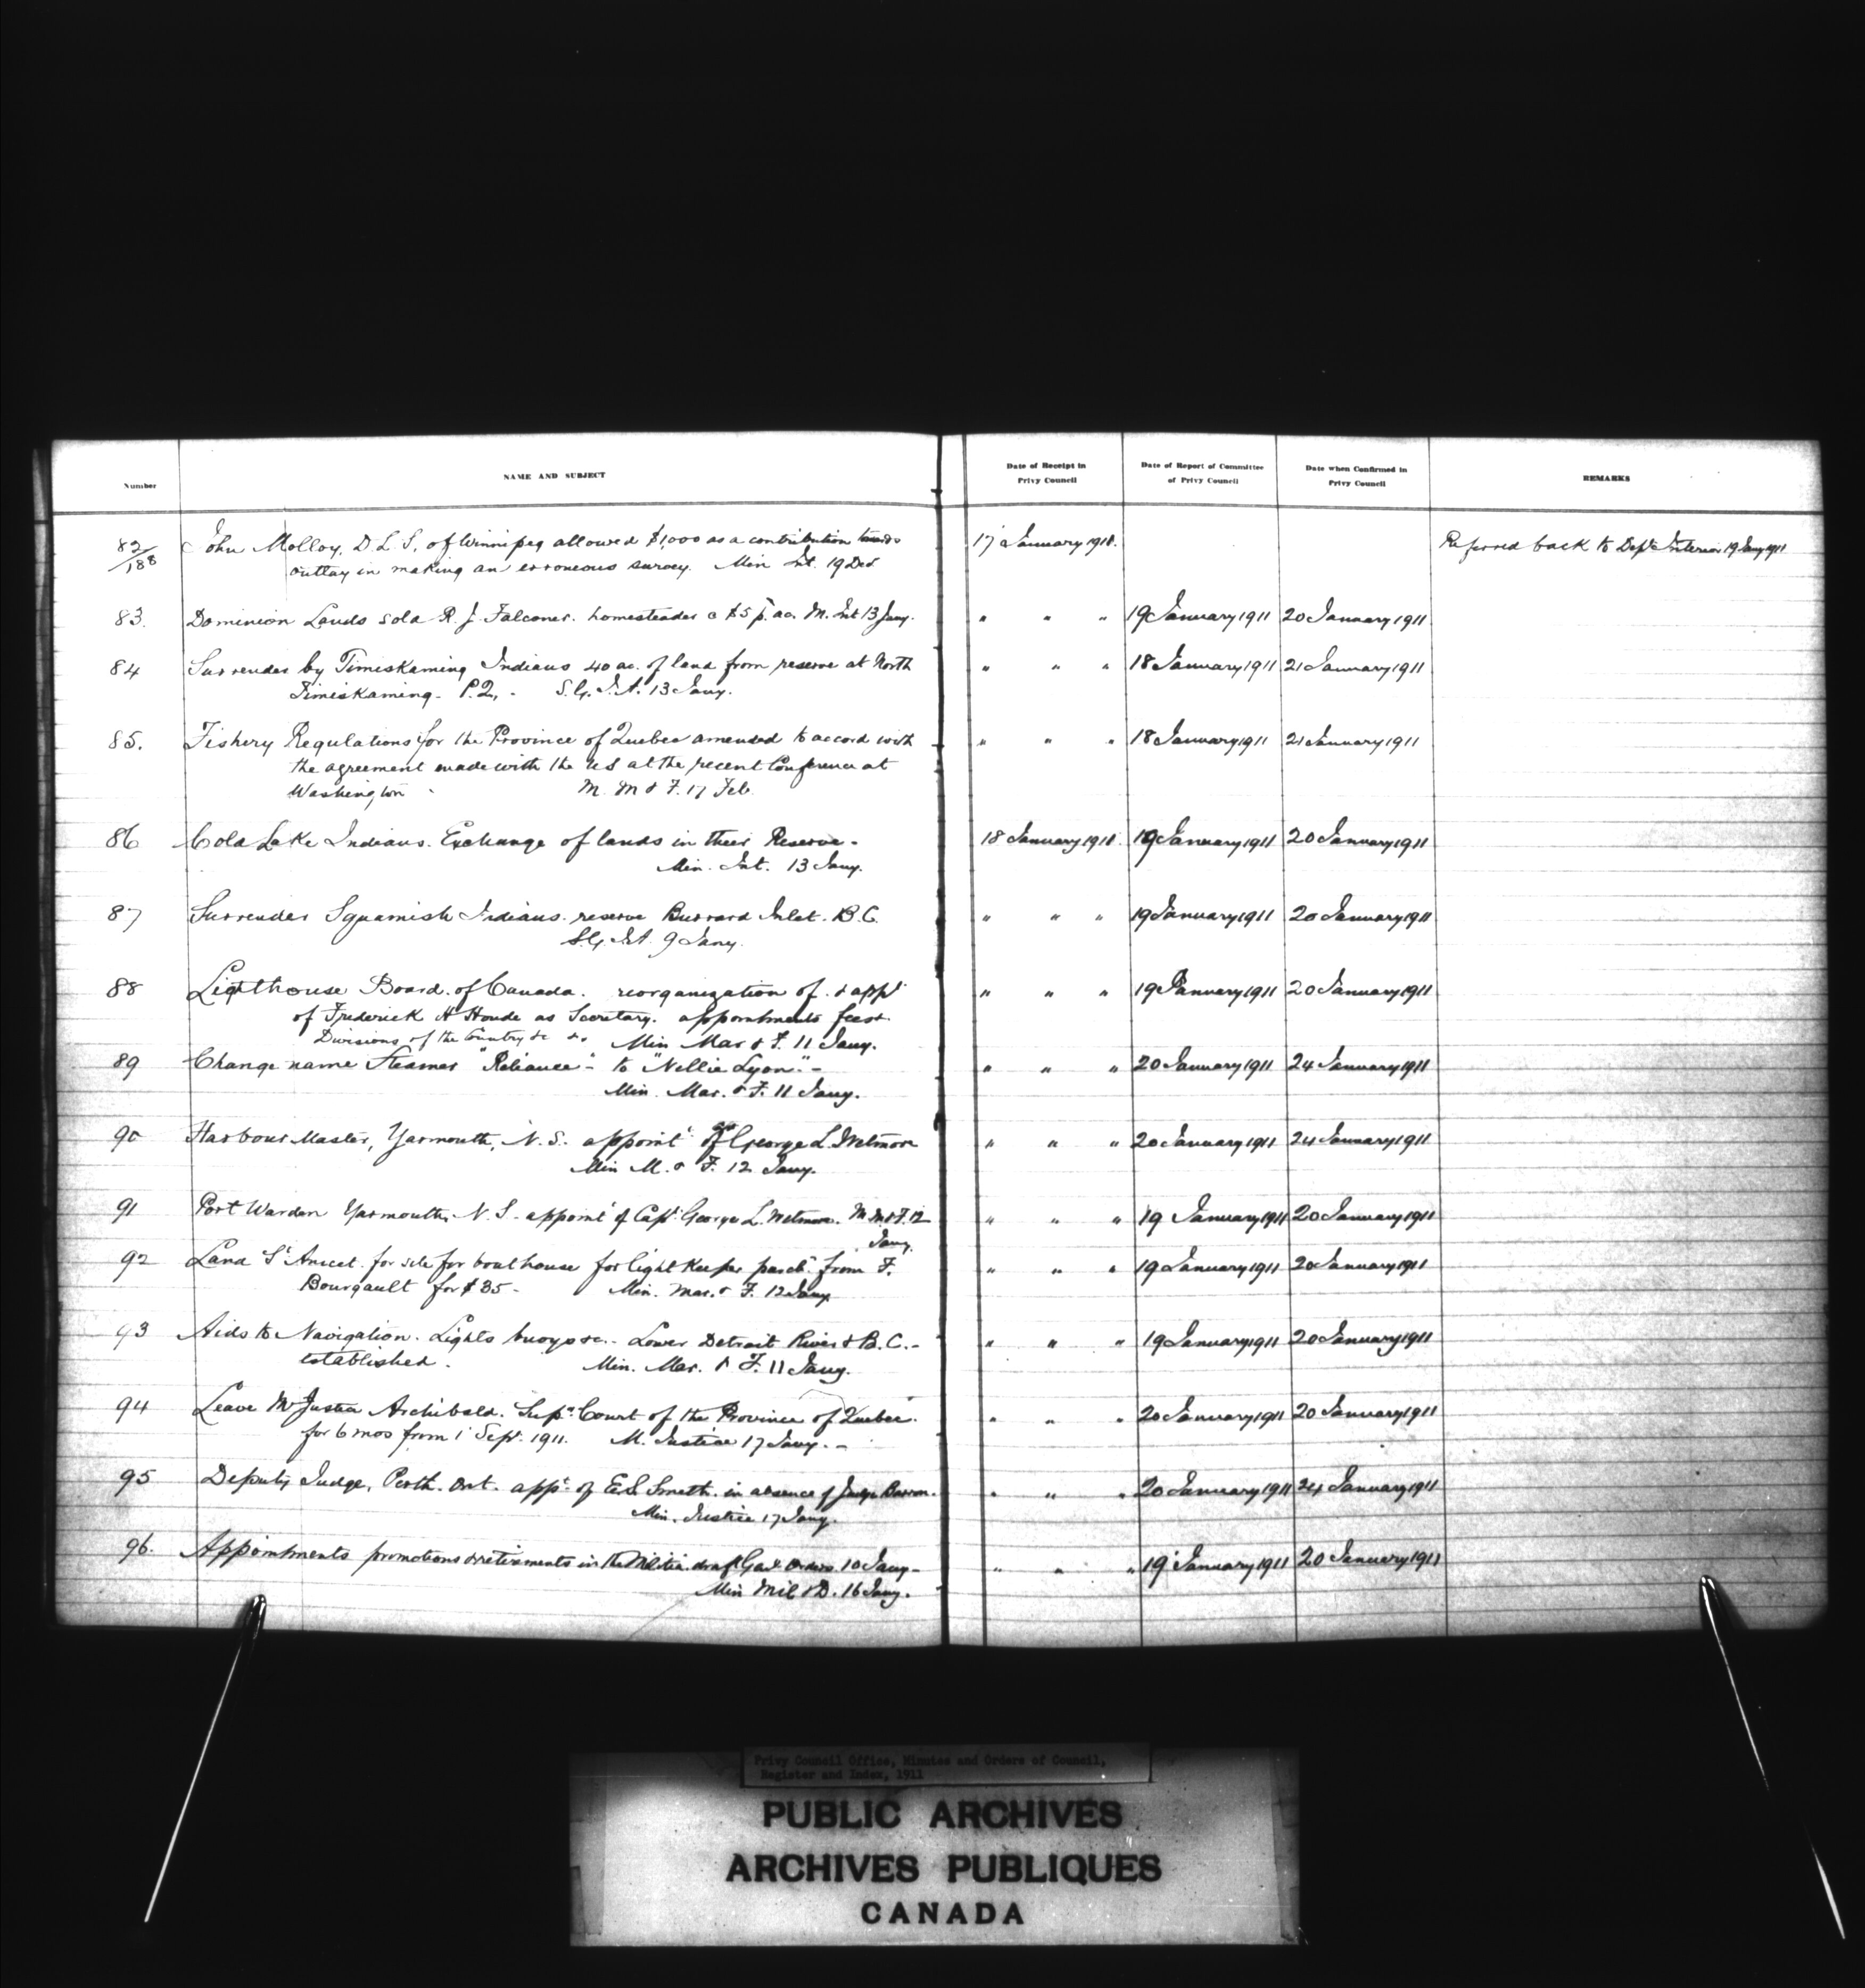 Number NAME AND SUBJECT Date of Receipt in Privy Council Date of Report of Committee of Privy Council Date when Confirmed in Privy Council REMARKS
82/188 John Molloy, D L S, of Winnipeg allowed $1,000 as a contribution towards 17 January 1911. Referred back to Dept Interior 19 Jany 1911
outlay in making an erroneous survey. Min Int. 19 Dec
83. Dominion Lands sold R. J. Falconer. homesteader @ $5 p. ac. M. Int 13 Jany. " " " 19 January 1911 20 January 1911
84 Surrender by Timiskaming Indians 40 ac. of land from reserve at North " " " 18 January 1911 21 January 1911
Timiskaming - P.Q. - S.G. I.A. 13 Jany.
85. Fishery Regulations for the Province of Quebec amended to accord with " " " 18 January 1911 21 January 1911
the agreement made with the US at the recent Conference at
Washington - M. M & F. 17 Feb.
86 Cold Lake Indians. Exchange of lands in their Reserve - 18 January 1911. 19 January 1911 20 January 1911
Min. Int. 13 Jany.
87 Surrender Squamish Indians reserve Burrard Inlet. B.C. " " " 19 January 1911 20 January 1911
S.G. I.A. 9 Jany.
88 Lighthouse Board of Canada. reorganization of. & appt " " " 19 January 1911 20 January 1911
of Frederick H Houde as Secretary. appointments
Divisions of the Country &c &c Min Mar & F. 11 Jany.
89 Change name Steamer "Reliance" - to "Nellie Lyon" - " " " 20 January 1911 24 January 1911
Min. Mar. & F. 11 Jany.
90 Harbour Master, Yarmouth, N.S. appoint of George L. Wetmore " " " 20 January 1911 24 January 1911
Min M. & F. 12 Jany.
91 Port Warden Yarmouth, N.S - appoint of Capt George L. Wetmore. M. M & F. 12 " " " 19 January 1911 20 January 1911
Jany.
92 Land St Anicet. for site for boathouse for light Keeper purchd from F. " " " 19 January 1911 20 January 1911
Bourgault for $35 - Min. Mar. & F. 12 Jany
93 Aids to Navigation. Lights buoys &c. - Lower Detroit River & B.C. - " " " 19 January 1911 20 January 1911
established. Min. Mar. & F. 11 Jany.
94 Leave Mr Justice Archibald. Supr Court of the Province of Quebec. " " " 20 January 1911 20 January 1911
for 6 mos from 1 Sept. 1911. M. Justice 17 Jany. -
95 Deputy Judge, Perth. Ont. appt of E.S. Smith. in absence of Judge Barron. " " " 20 January 1911 24 January 1911
Min. Justice 17 Jany.
96. Appointments promotions & retirements in the Militia. draft Genl Orders 10 Jany - " " " 19 January 1911 20 January 1911
Min Mil & D. 16 Jany.
Privy Council Office, Minutes and Orders of Council,
Register and Index, 1911
PUBLIC ARCHIVES
ARCHIVES PUBLIQUES
CANADA